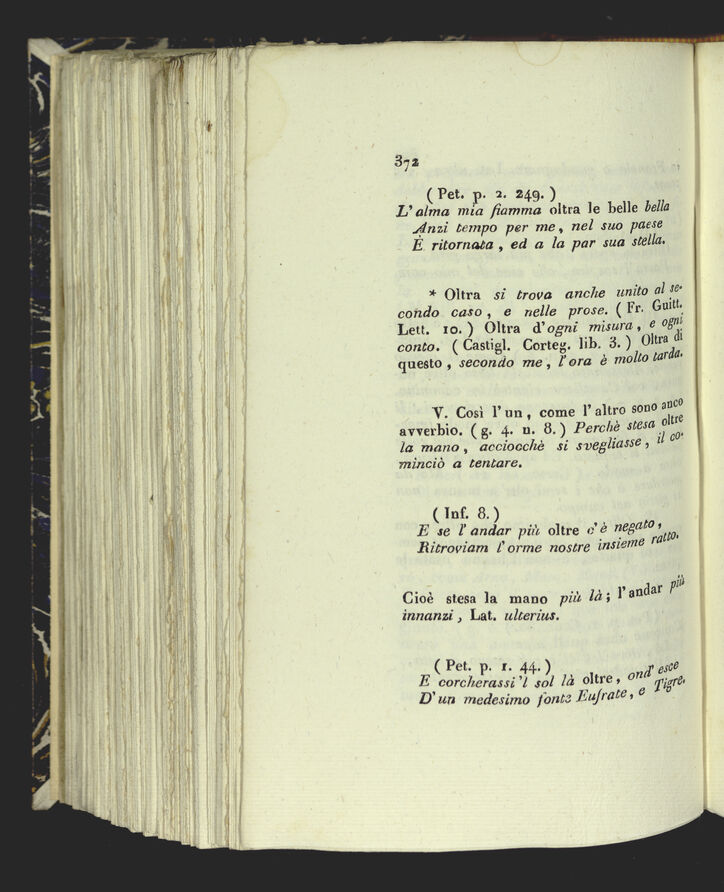 372
( Pet. p. 2. 249. )
L' alma mia fiamma oltra le belle bella
Anzi tempo per me, nel suo paese
È ritornata, ed a la par sua stella.
* Oltra si trova anche unito al se-
condo caso, e nelle prose. ( Fr. Guitt.
Lett. 10. ) Oltra d'ogni misura, e ogni
conto. ( Castigl. Corteg. lib. 3. ) Oltra di
questo, secondo me, l'ora è molto tarda.
V. Così l'un, come l'altro sono anco
avverbio. ( g. 4. n. 8. ) Perchè stesa oltre
la mano, acciocchè si svegliasse, il co-
minciò a tentare.
( Inf. 8. )
E se l'andar più oltre c'è negato,
Ritroviam l'orme nostre insieme ratto.
Cioè stesa la mano più là; l'andar più
innanzi, Lat. ulterius.
( Pet. p. 1. 44. )
E corcherassi 'l sol là oltre, ond' esce
D'un medesimo fonte Eufrate, e Tigre.